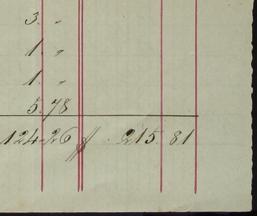 3. "
1. "
1. "
5.78
124.26 f. 215.81